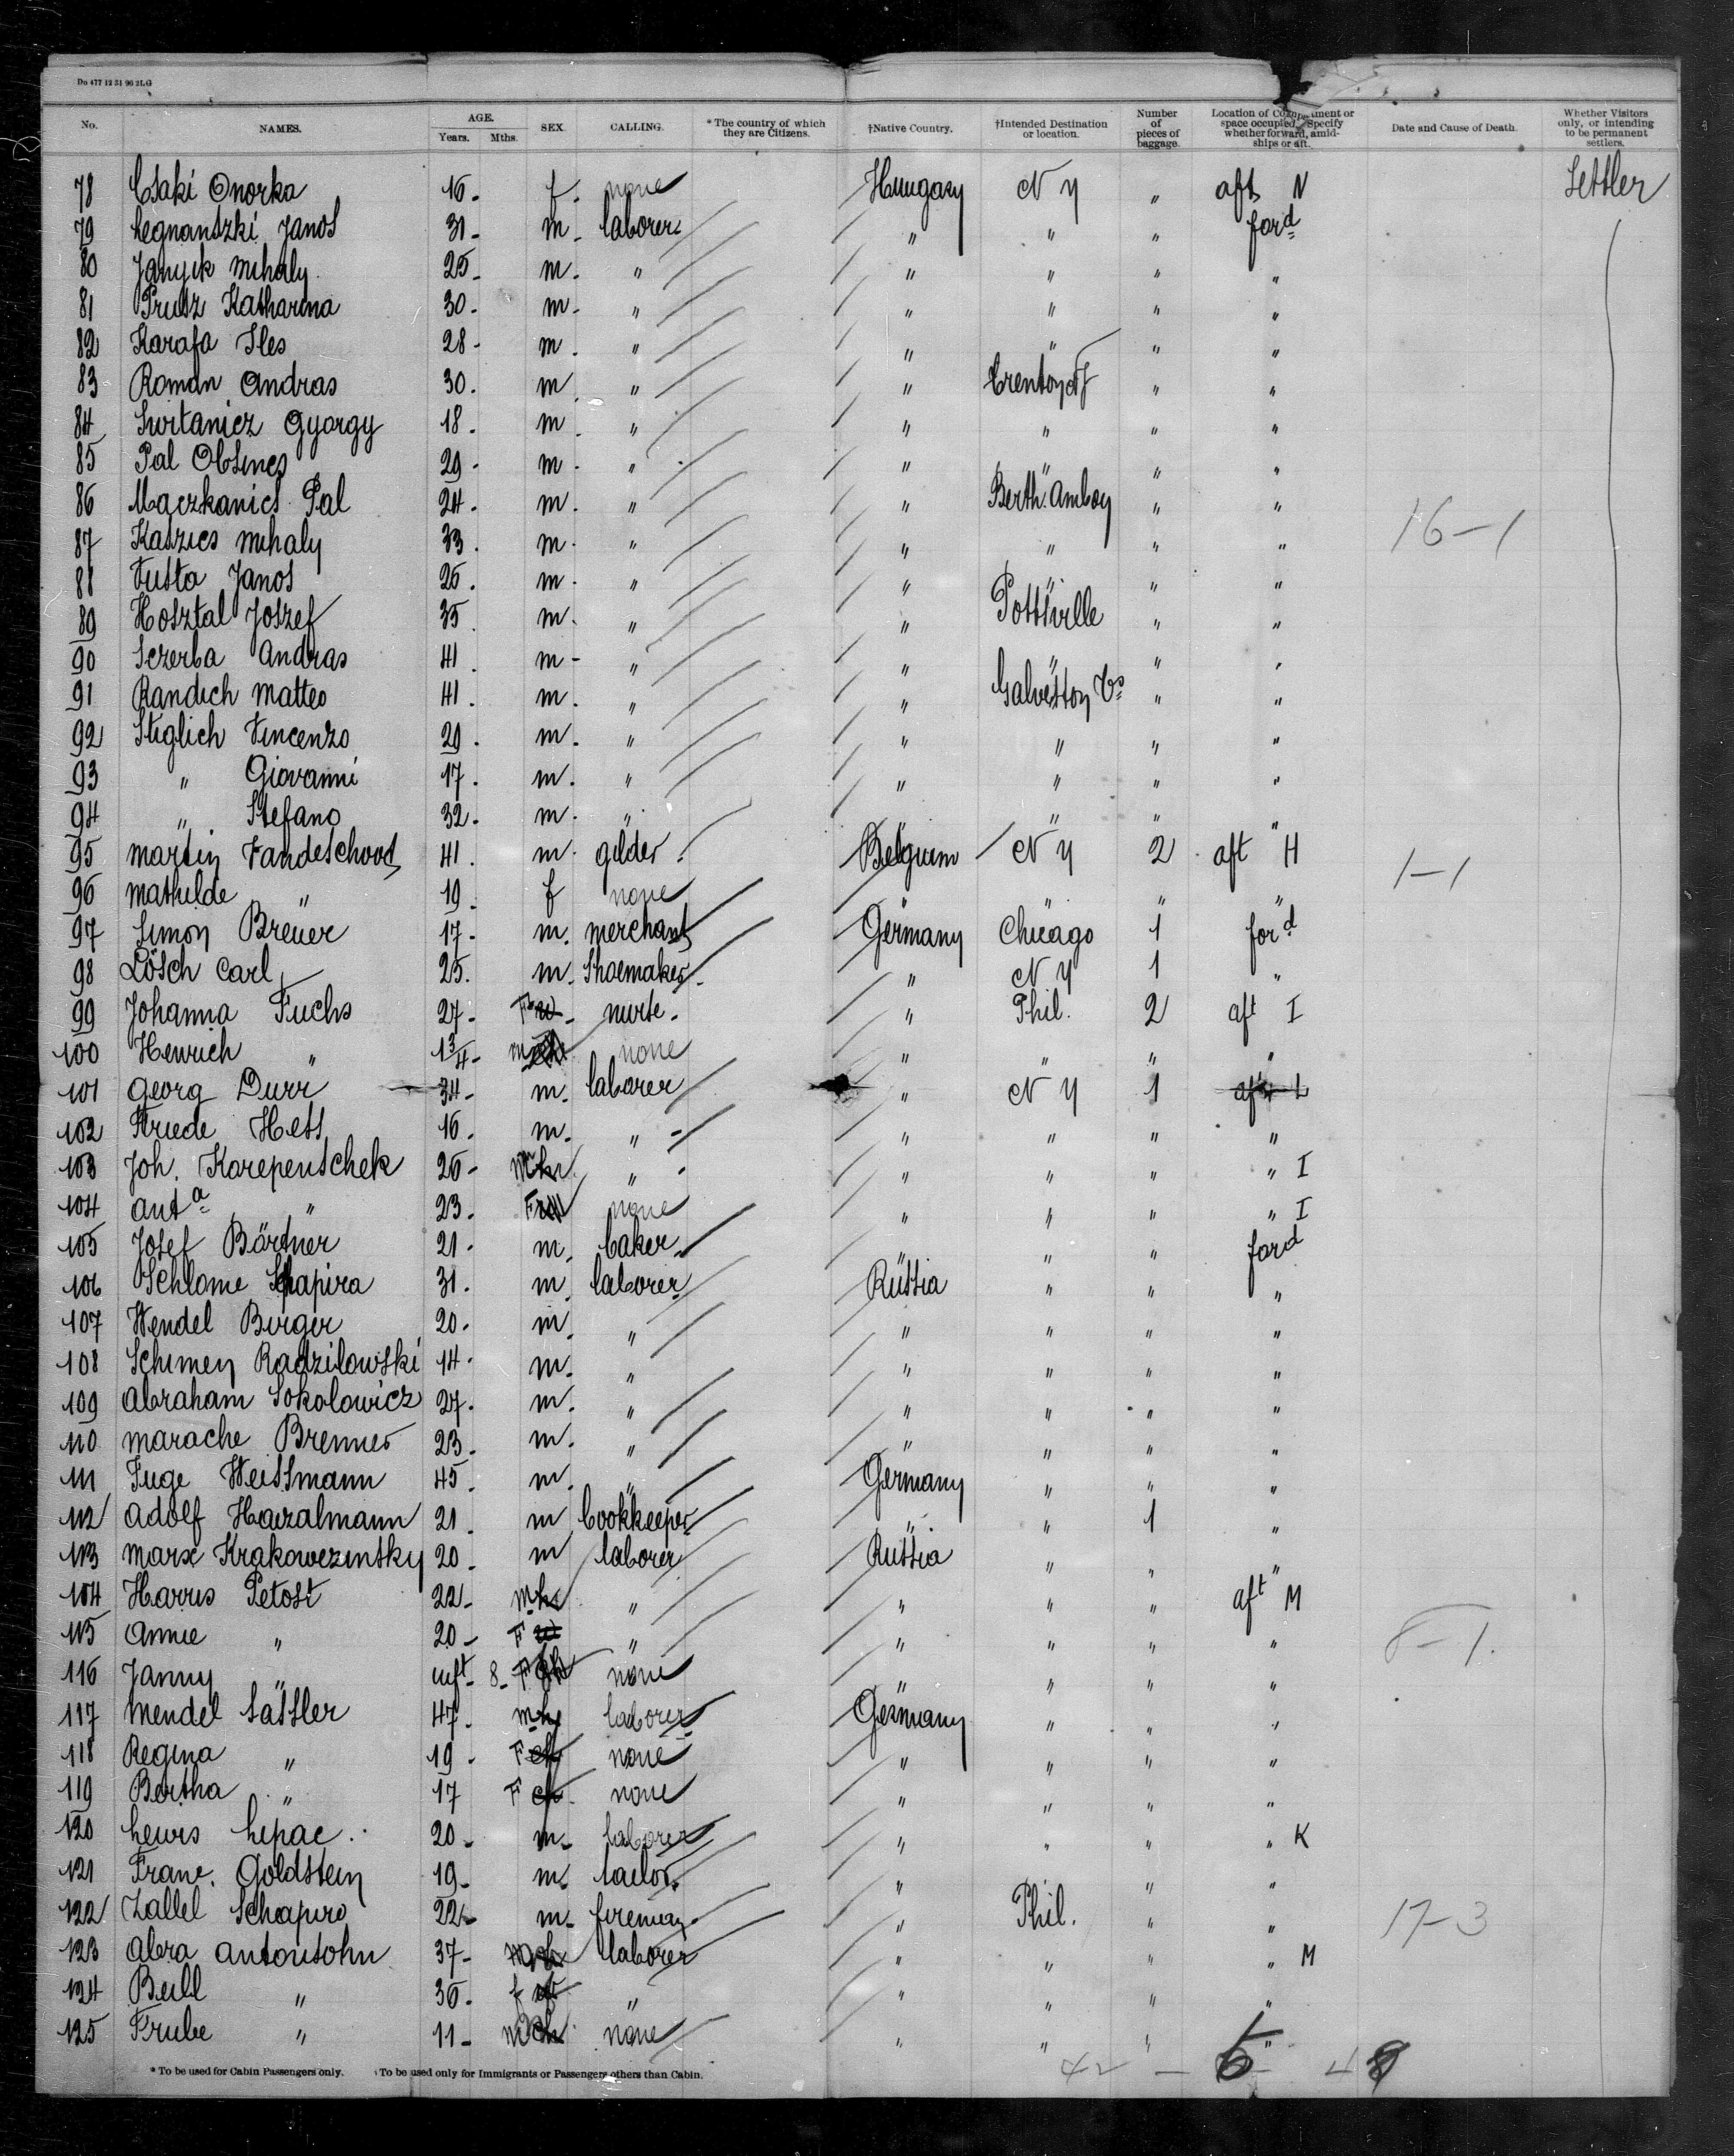 Do 477 12 31 96 2LG
No. NAMES. AGE. Years. Mths. SEX. CALLING. * The country of which they are Citizens. †Native Country. †Intended Destination or location. Number of pieces of baggage. Location of Compartment or space occupied. Specify whether forward, amidships or aft. Date and Cause of Death. Whether Visitors only, or intending to be permanent settlers.
78 Csaki Onorka 16. f. none Hungary N Y " aft N Settler
79 Legnanszki Janos 31 - m - laborer " " " ford
80 Janyik Mihaly 25 - m. " " " " "
81 Prusz Katharina 30. m. " " " " "
82 Karafa Iles 28 - m. " " " " "
83 Roman Andras 30. m " " Trenton NJ " "
84 Switanicz Gyorgy 18. m. " " " " "
85 Pal 29 - m. " " " " "
86 Maczkanics Pal 24. m. " " Berth. Amboy " " 16-1
87 Kaszics Mihaly 33. m. " " " " "
88 Janos m. " " " " "
89 Hosztal Joszef 35 m. " " Pottsville " "
90 Sczerba Andras 41. m - " " " " "
91 Randich Matteo 41. m. " " Galveston " "
92 Stiglich Vincenzo 29. m. " " " " "
93 " Giovanni 17. m. " " " " "
94 " Stefano 32. m. " " " " "
95 Martin 41. m. gilder. Belgium N Y 2 aft H 1-1
96 Mathilde " 19. f none " " " "
97 Simon Breuer 17. m. merchant Germany Chicago 1 ford
98 Lösch Carl 25. m. Shoemaker. " N Y 1 "
99 Johanna Fuchs 27 - F nurse. " Phil. 2 aft I
100 Heinrich " 1 3/4 - m none " " " "
101 Georg Durr 34 - m. laborer " N Y 1 aft L
102 Friede Hess 16. m. " " " " "
103 Joh. Karepentschek 26 - M " " " " " I
104 Anta " 23. F none " " " " I
105 Josef Bärtner 21. m. baker. " " " ford
106 Schlome Schapira 31. m. laborer Russia " " "
107 Wendel Birger 20. m. " " " " "
108 Schimen Radzilowski 14. m. " " " " "
109 Abraham Sokolowicz 27. m. " " " " "
110 Marache Brenner 23. m. " " " " "
111 Weissmann 45. m. " Germany " " "
112 Adolf 21. m bookkeeper " " 1 "
113 Marx Krakowezinsky 20. m laborer Russia " " "
104 Harris Petost 22 - M " " " " aft M
115 Annie " 20 - F " " " " " 8-1.
116 Janny " inft - 8 - F none " " " "
117 Mendel Sattler 47. M laborer Germany " " "
118 Regina " 19. F none " " " "
119 Bertha " 17 F none " " " "
120 Lewis Lipac. 20 - m - laborer " " " " K
121 Franc. Goldstein 19 - m. tailor. " " " "
122 Zallel Schapiro 22 - m - fireman. " Phil. " " 17-3
123 Abra Antonsohn 37 - laborer " " " " M
124 Beill " 36. f " " " " "
125 Frube " 11 - none " " " "
* To be used for Cabin Passengers only. †To be used only for Immigrants or Passengers others than Cabin.
42 - 6 - 48